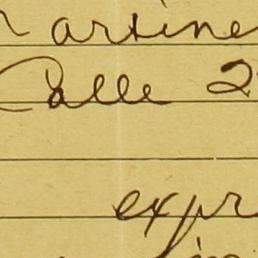 artine
Calle 2
expr